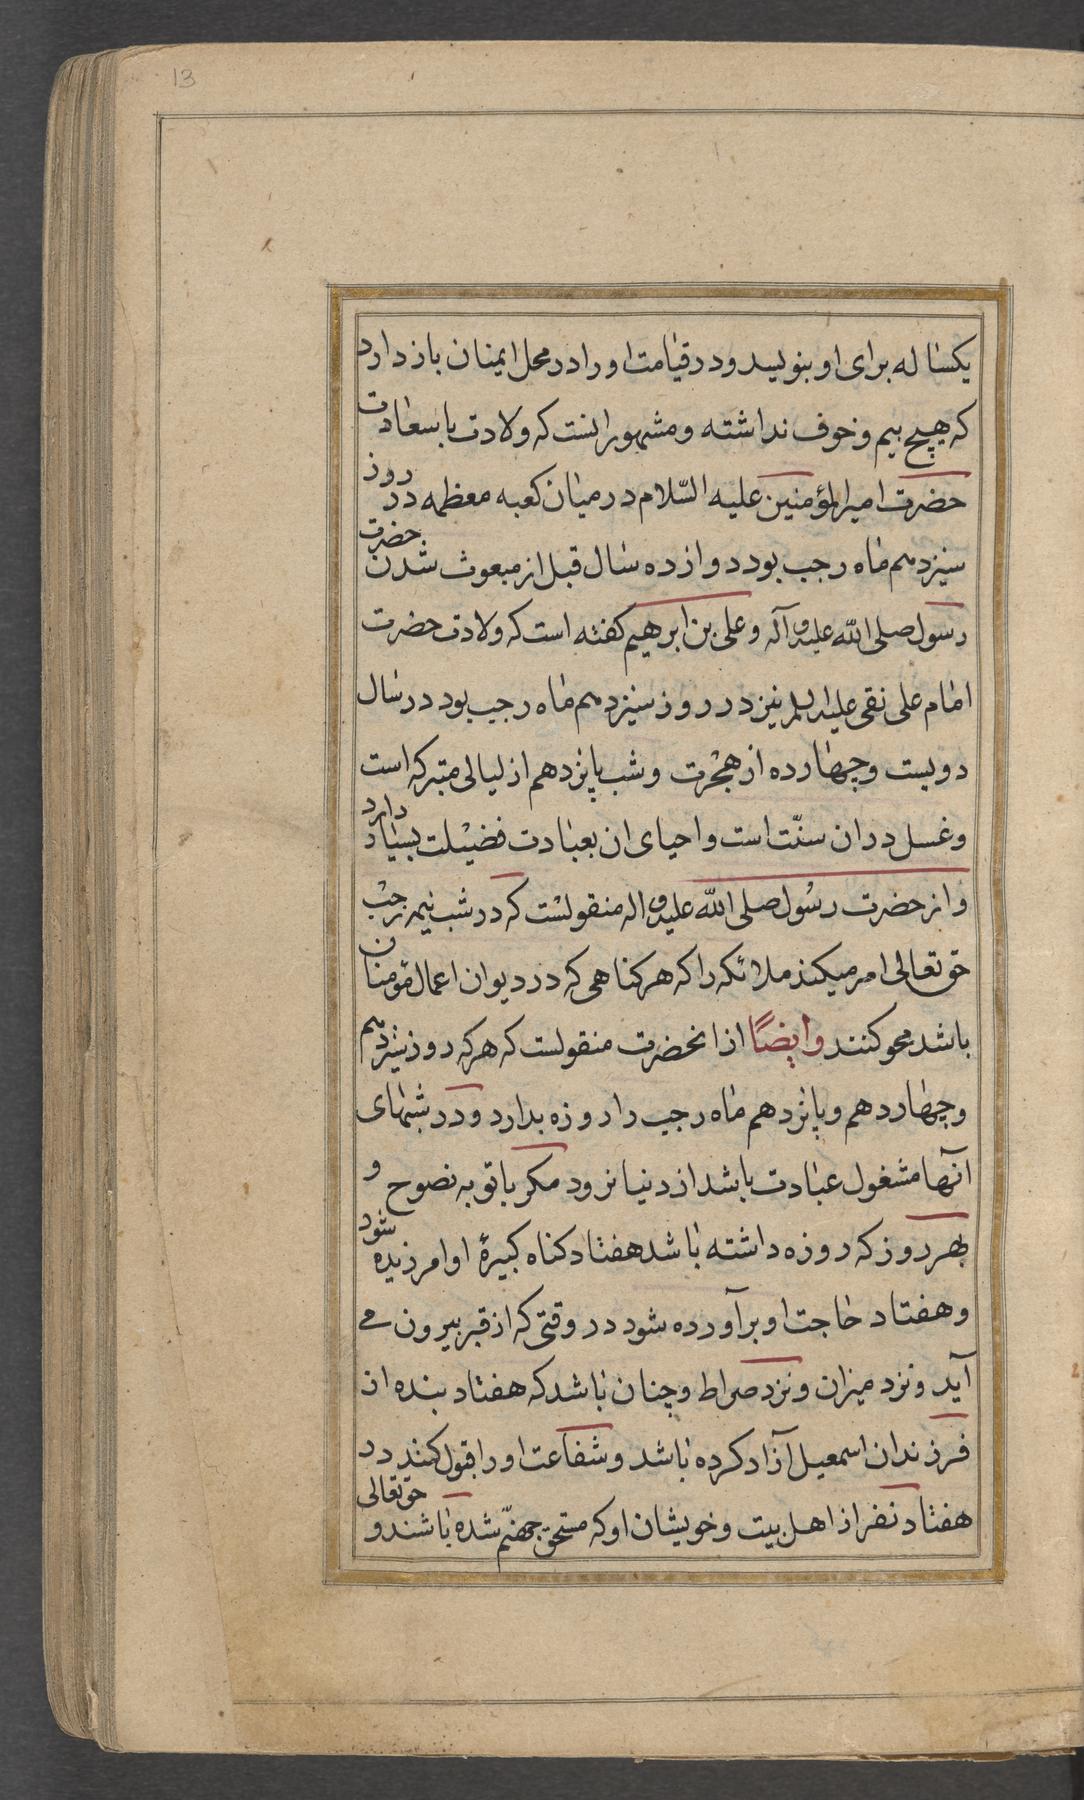 13
یکساله برای او بنویسد و در قیامت او را در محل ایمنان باز دارد
که هیچ بیم و خوف نداشته و مشهور انست که ولادت با سعادت
حضرت امیر المؤمنین علیه السّلام در میان کعبه معظمه در روز
سیزدهم ماه رجب بود دوازده سال قبل از مبعوث شدن حضرت
رسول صلی الله علیه و آله و علی بن ابرهیم کفته است که ولادت حضرت
امام علی نقی علیه السلم نیز در روز سیزدهم ماه رجب بود در سال
دویست و چهارده از هجرت و شب پانزدهم از لیالی متبرکه است
و غسل در ان سنّت است و احیای ان بعبادت فضیلت بسیار دارد
و از حضرت رسول صلی الله علیه و اله منقولست که در شب نیمه رجب
حق تعالی امر میکند ملائکه را که هر کناهی که در دیوان اعمال مؤمنان
باشد محو کنند وایضًا از انحضرت منقولست که هر که روز سیزدهم
و چهاردهم و پانزدهم ماه رجب را روزه بدارد و در شبهای
آنها مشغول عبادت باشد از دنیا نرود مکر با توبه نصوح و
بهر روز که روزه داشته باشد هفتاد کناه کبیرهٔ او امرزیده شود
و هفتاد حاجت او بر آورده شود در وقتی که از قبر بیرون می
آید و نزد میزان و نزد صراط و چنان باشد که هفتاد بنده از
فرزندان اسمعیل آزاد کرده باشد و شفاعت او را قبول کنند در
هفتاد نفر از اهل بیت و خویشان او که مستحق جهنّم شده باشند و حق تعالی